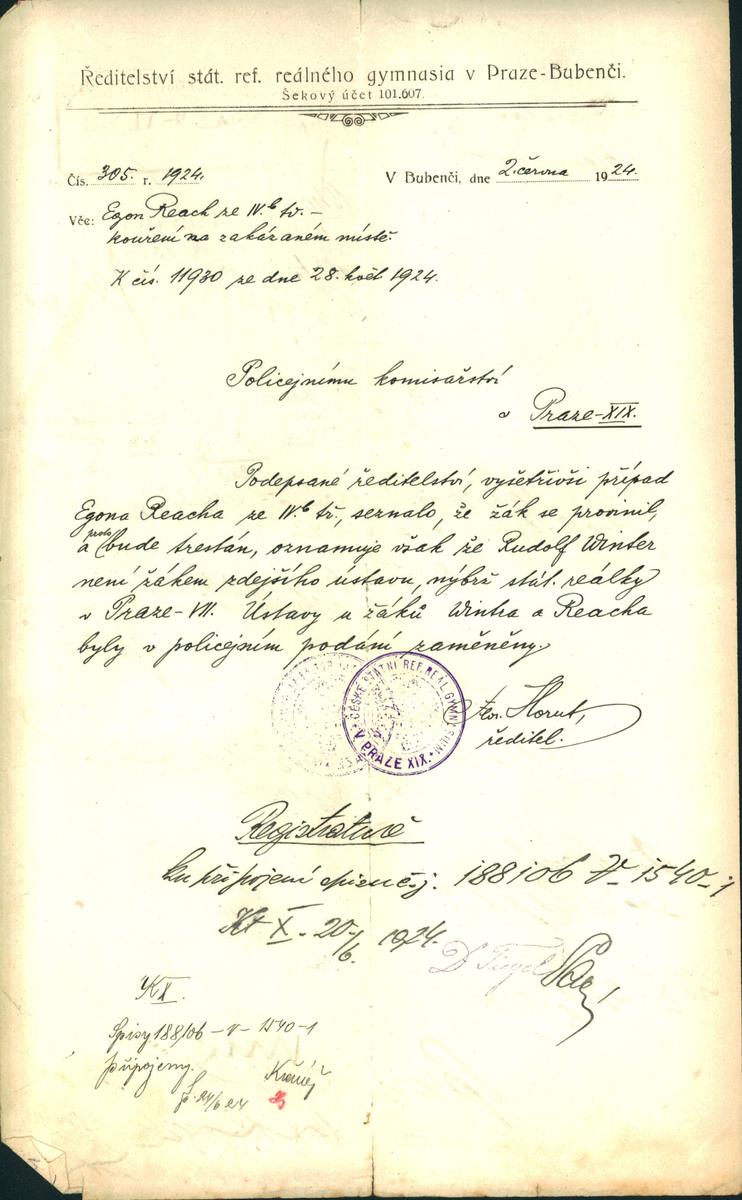 Ředitelství stát. ref. reálného gymnasia v Praze-Bubenči.
Šekový účet 101.607.
Čís. 305. r. 1924. V Bubenči, dne 2. června 1924.
Věc: Egon Reach ze IV.b tř. –
kouření na zakázaném místě.
K čís. 11930 ze dne 28. květ. 1924.
Policejnímu komisařství
v Praze-XIX.
Podepsané ředitelství, vyšetřivši případ
Egona Reacha ze IV.b tř., seznalo, že žák se provinil,
a proto bude trestán, oznamuje však že Rudolf Winter
není žákem zdejšího ústavu, nýbrž stát. reálky
v Praze-VII. Ústavy u žáků Wintra a Reacha
byly v policejním podání zaměněny.
ČESKÉ STÁTNÍ REF. REÁL. GYMNASIUM
V PRAZE XIX.
Horut,
ředitel.
Registratuře
ku připojení spisu čj. 188106 V – 1540-1
X. 20/6. 1924.
Dr
K X.
Spisy 188106 – V – 1540-1
připojeny.
24/6 24